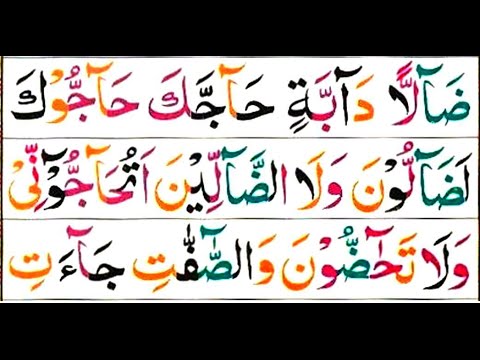 ضَآلًّا دَآبَّةٍ حَآجَّكَ حَآجُّوْكَ
اَضَآلُّوْنَ وَلَا الضَّآلِّيْنَ اَتُحَآجُّوْٓنِّىْ
وَلَا تَحٰٓضُّوْنَ وَالصّٰٓفّٰتِ جَآءَتِ